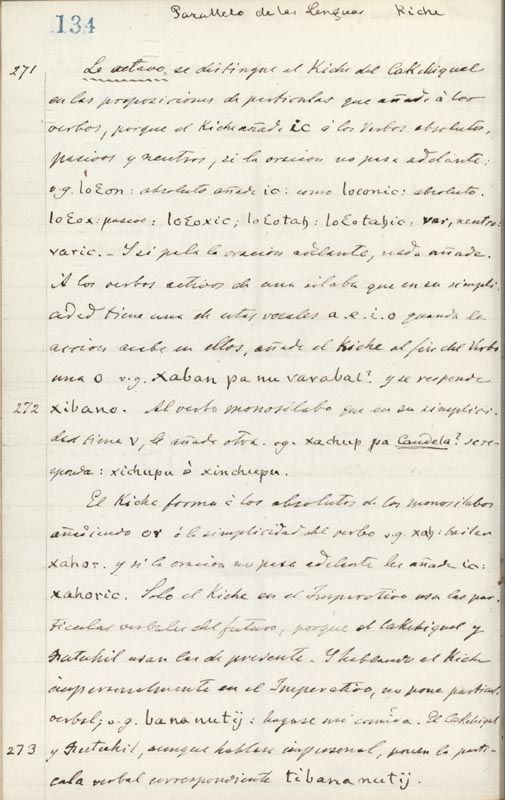 134
Parallelo de las Lenguas Kiche
271 Lo octavo, se distingue el Kiche del Cakchiquel
en las proposiciones de particulas que añade á los
verbos, porque el Kiche añade ic á los Verbos absolutos,
pasivos y neutros, si la oracion no pasa adelante:
v.g. loƐon: absoluto añade ic: como loconic: absoluto.
loƐox: pasivo: loƐoxic; loƐotah: loƐotahic: var, neutro:
varic. _ Y si pasa la oracion adelante, nada añade.
A los verbos activos de una silaba que en su simpli-
cidad tiene una de estas vocales a.e.i.o quando la
accion acabe en ellos, añade el Kiche al fin del Verbo
una o v.g. xaban pa nu varabal? y se responde
272 xibano. Al verbo monosilabo que en su simplici-
dad tiene v, le añade otra. vg. xachup pa Candela? se re-
sponda: xichupu ó xinchupu.
El Kiche forma á los absolutos de los monosilabos
añadiendo or á la simplicidad del verbo v.g. xah: bailar
xahor. y si la oracion no pasa adelante le añade ic:
xahoric. Solo el Kiche en el Imperativo usa las par-
ticulas verbales del futuro, porque el Cakchiquel y
Zutuhil usan las de presente. Y hablando el Kiche
impersonalmente en el Imperativo, no pone particul.
verbal; v.g. bana nutij: hagase mi comida. El Cakchiquel
273 y Zutuhil, aunque hablase impersonal, ponen la parti-
cula verbal correspondiente tibana nutij.